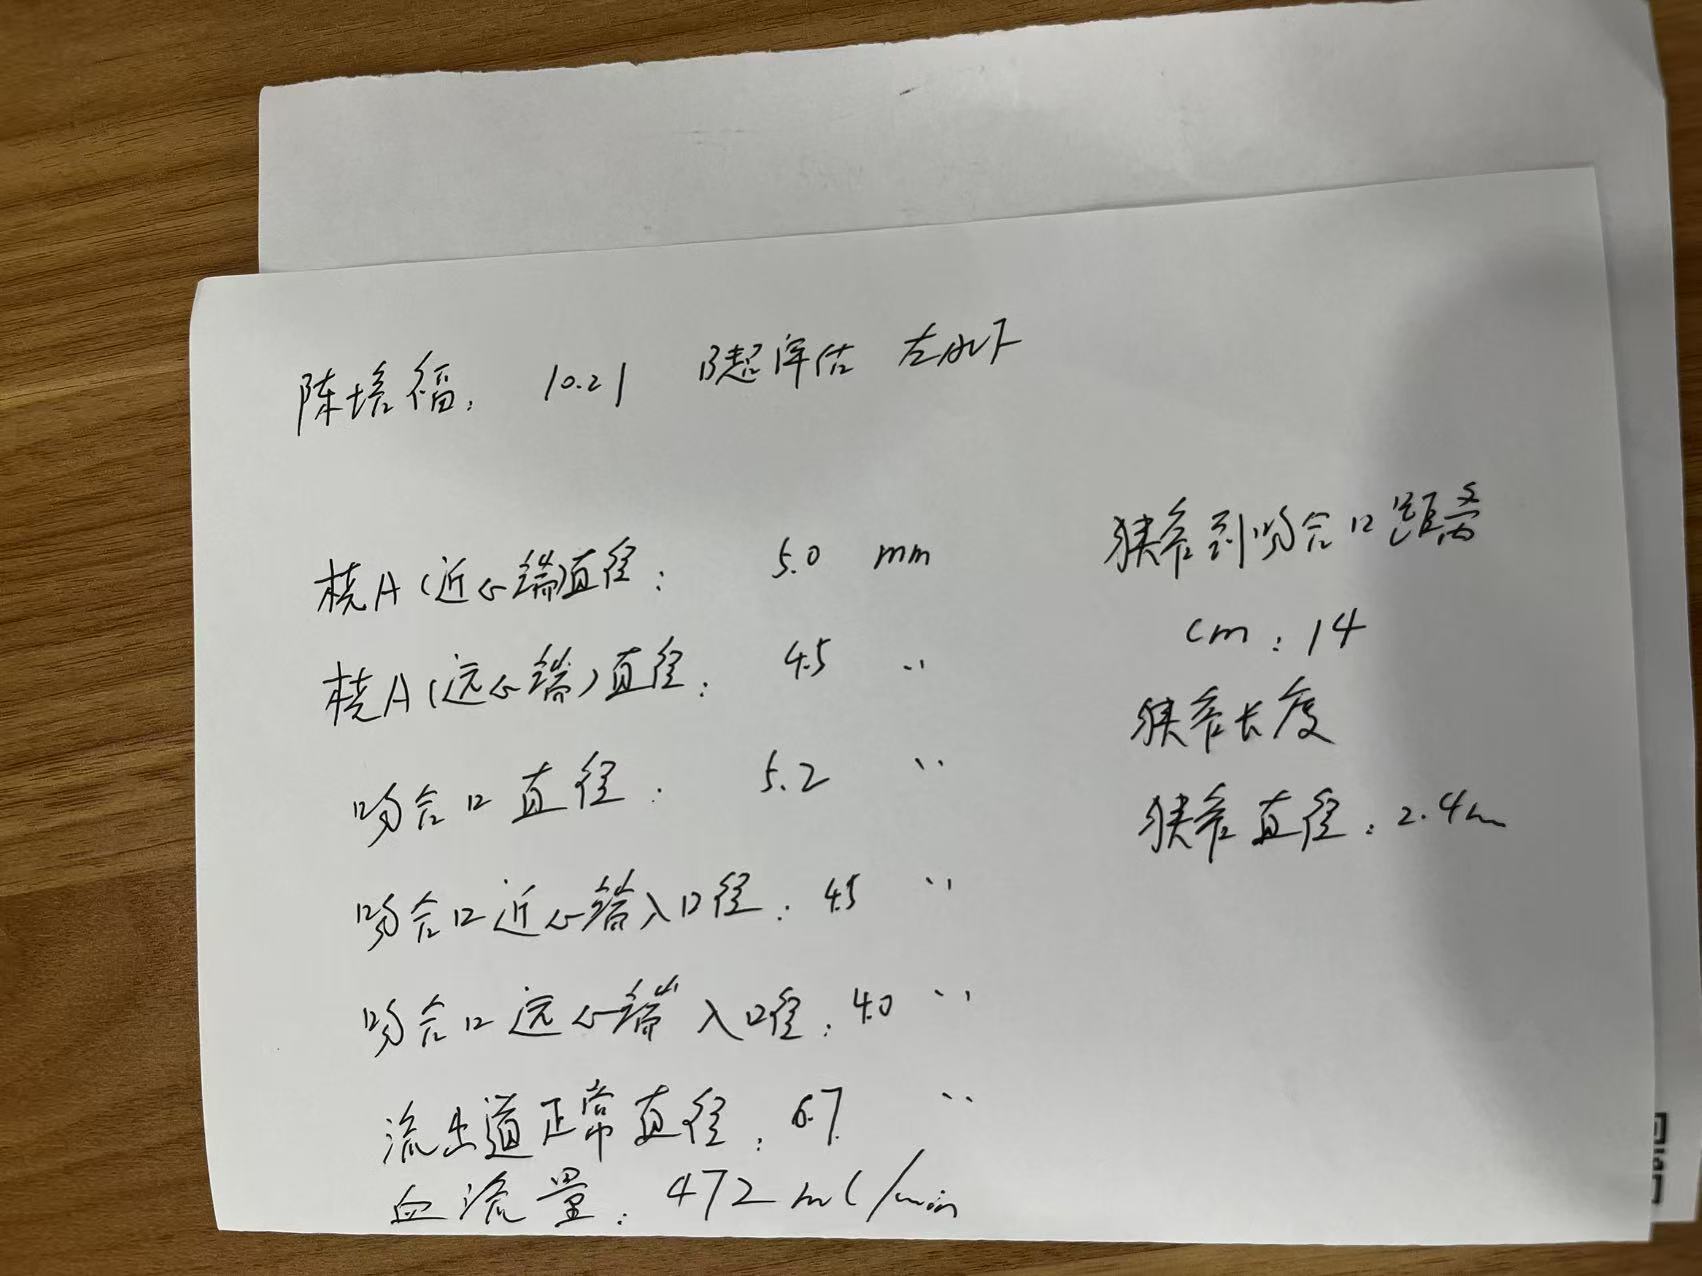 陈培福: 10.21 B超评估 左AVF
桡A(近心端)直径: 5.0 mm
桡A(远心端)直径: 4.5 〃
吻合口直径: 5.2 〃
吻合口近心端入口径: 4.5 〃
吻合口远心端入口径: 4.0 〃
流出道正常直径: 6.7 〃
血流量: 472 ml/min
狭窄到吻合口距离
cm: 14
狭窄长度
狭窄直径: 2.4